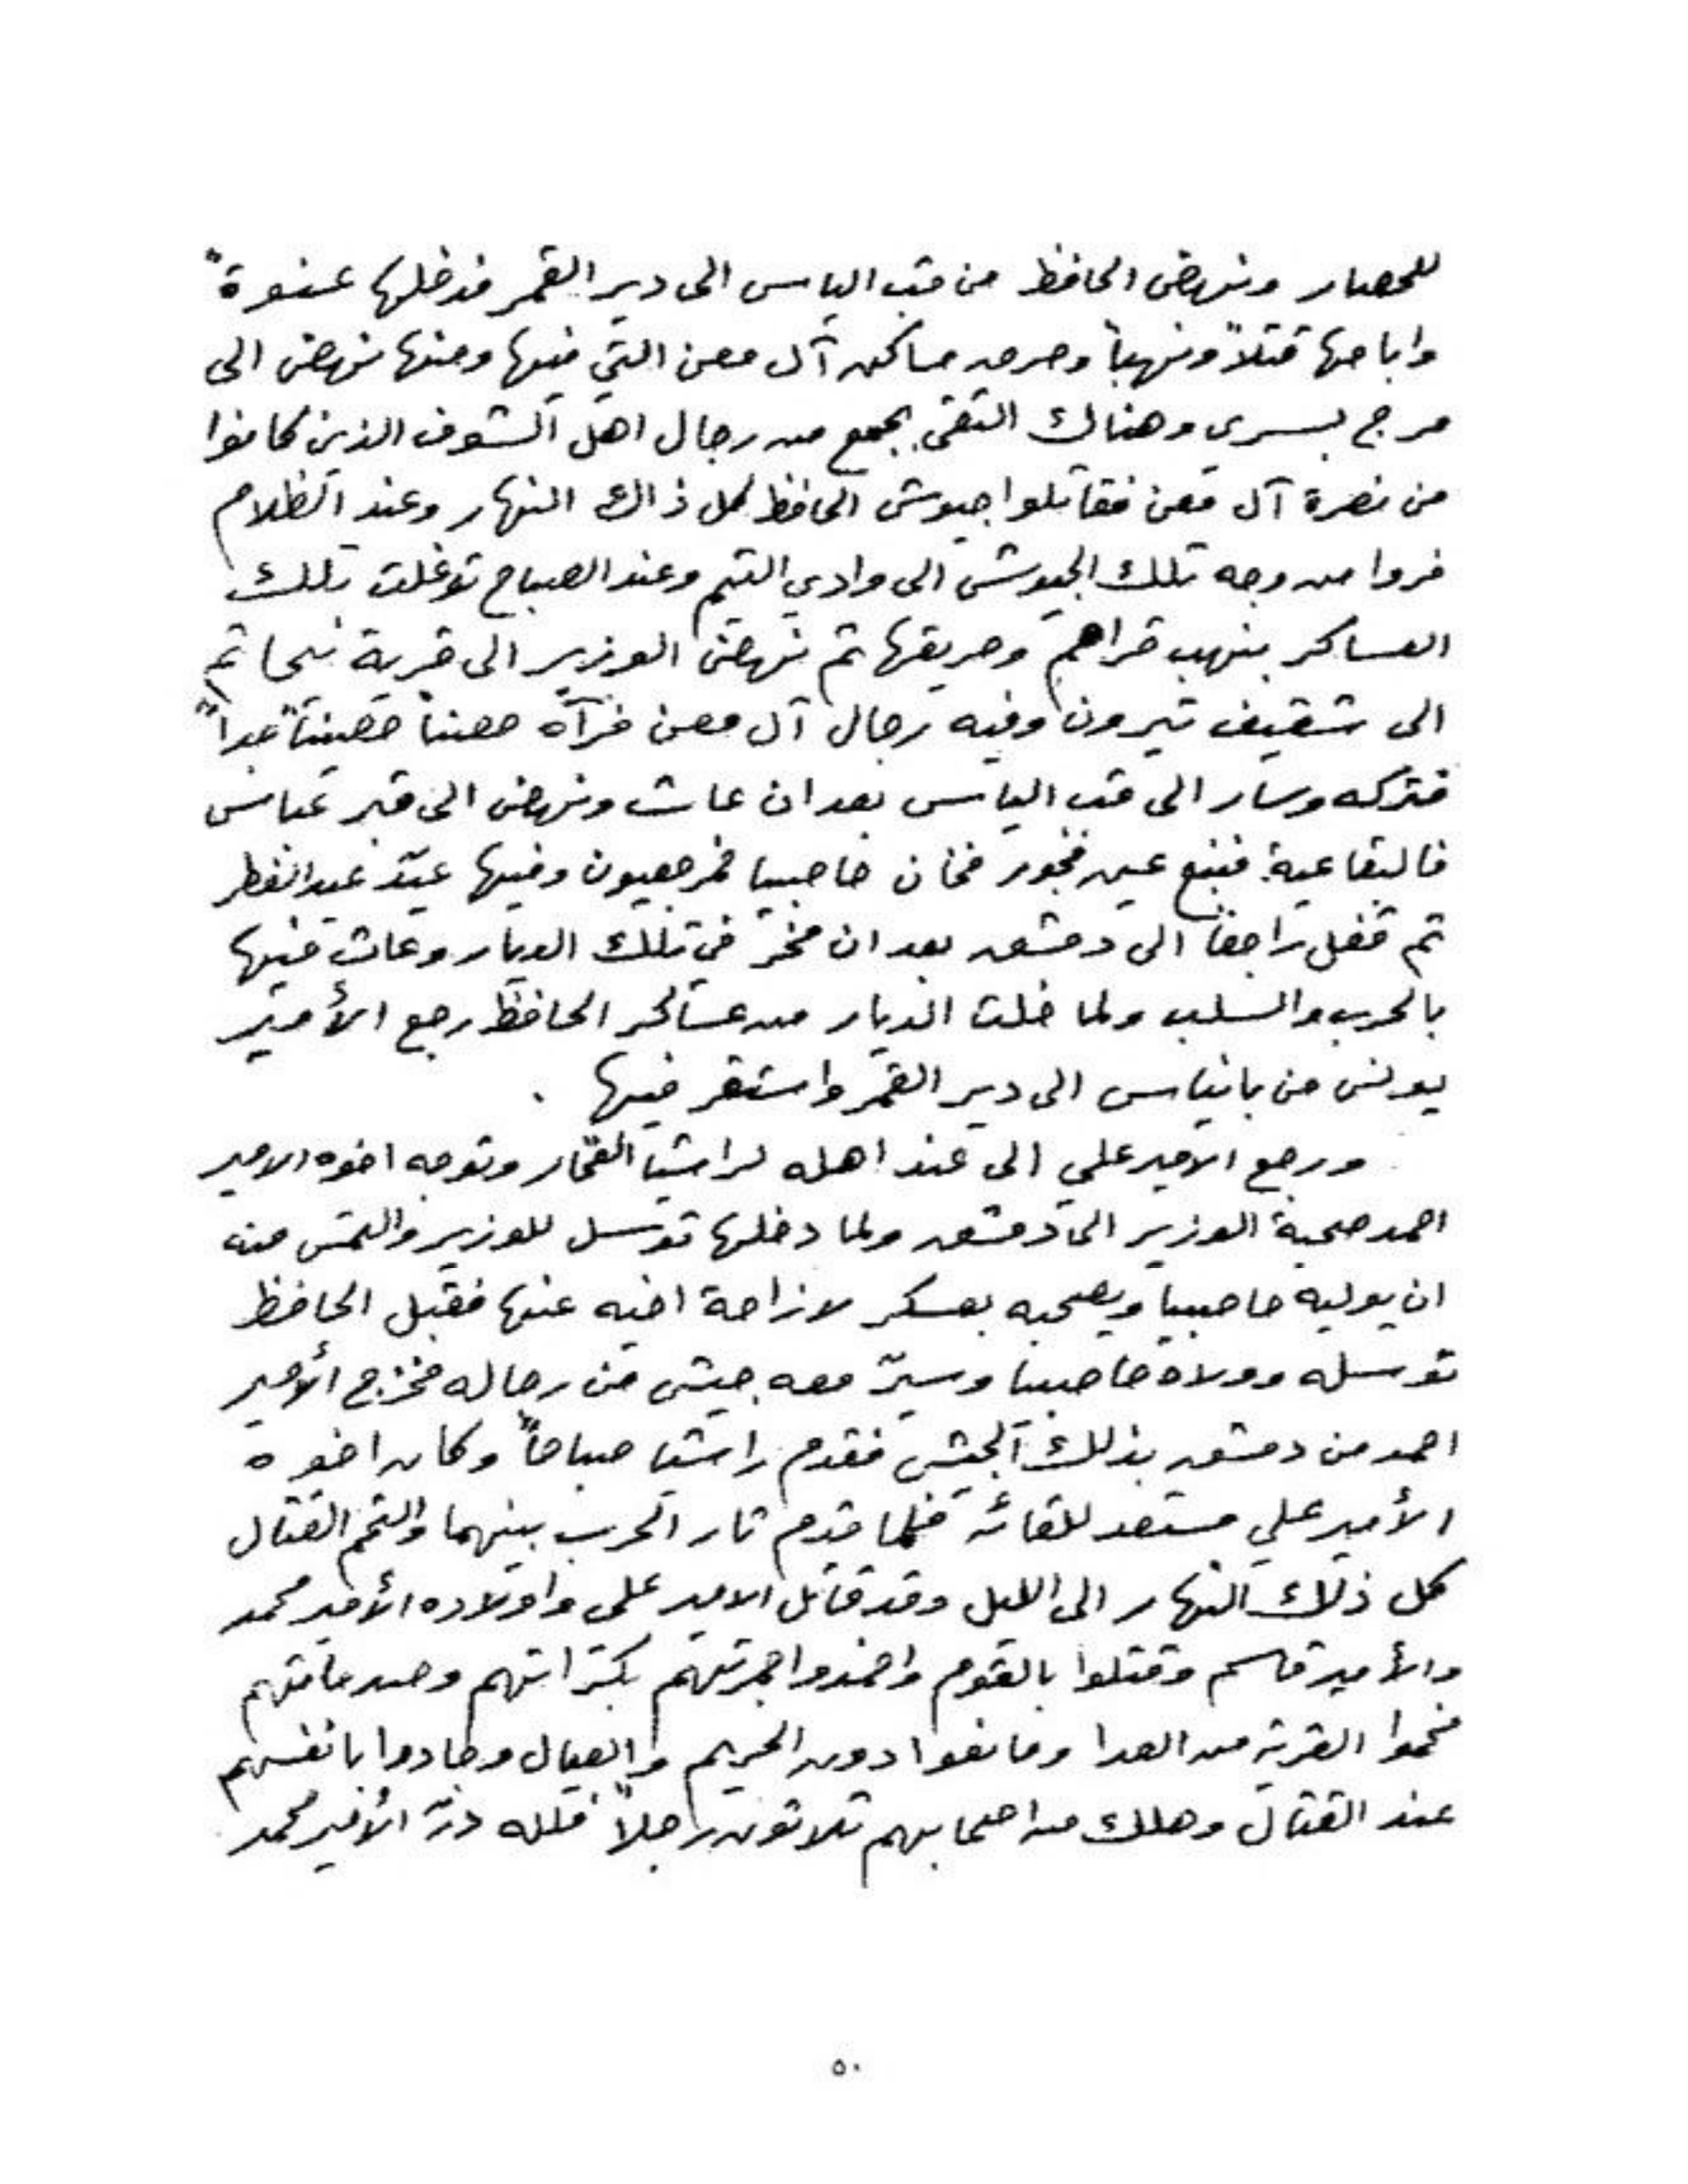 للحصار ونهض الحافظ من قب الياس الى دير القمر فدخلها عنوةً
واباحها قتلاً ونهباً وحرق مساكن آل معن التي فيها ومنها نهض الى
مرج بسري وهناك التقى بجمع من رجال اهل الشوف الذين كانوا
من نصرة آل معن فقاتلوا جيوش الحافظ كل ذالك النهار وعند الظلام
فروا من وجه تلك الجيوش الى وادي التيم وعند الصباح توغلت تلك
العساكر بنهب قراهم وحريقها ثم نهض الوزير الى قرية نيحا ثم
الى شقيف تيرون وفيه رجال آل معن فرآه حصناً حصيناً جداً
فتركه وسار الى قب الياس بعد ان عاث ونهض الى قبر عباس
فالبقاعية فنبع عين فجور فخان حاصبيا فمرجعيون وفيها عيّد عيد الفطر
ثم قفل راجعاً الى دمشق بعد ان مخر في تلك الديار وعاث فيها
بالحرب والسلب ولما خلت الديار من عساكر الحافظ رجع الأمير
يونس من بانياس الى دير القمر واستقر فيها .
ورجع الامير علي الى عند اهله لراشيا الفخّار وتوجه اخوه الامير
احمد صحبة الوزير الى دمشق ولما دخلها توسل للوزير والتمس منه
ان يوليه حاصبيا ويصحبه بعسكر لازاحة اخيه عنها فقبل الحافظ
توسله وولاه حاصبيا وسيّر معه جيش من رجاله فخرج الأمير
احمد من دمشق بذلك الجيش فقدم راشيا صباحاً وكان اخوه
الأمير علي مستعد للقائه فلما قدم ثار الحرب بينهما والتحم القتال
كل ذلك النهار الى الليل وقد قاتل الامير علي واولاده الأمير محمد
والأمير قاسم وقتلوا بالقوم واخمدوا جمرتهم بكثراتهم وصدماتهم
فحموا القرية من العدا ومانعوا دون الحريم والعيال وجادوا بانفسهم
عند القتال وهلك من اصحابهم ثلاثون رجلاً فلله درّ الأمير محمد
٥٠